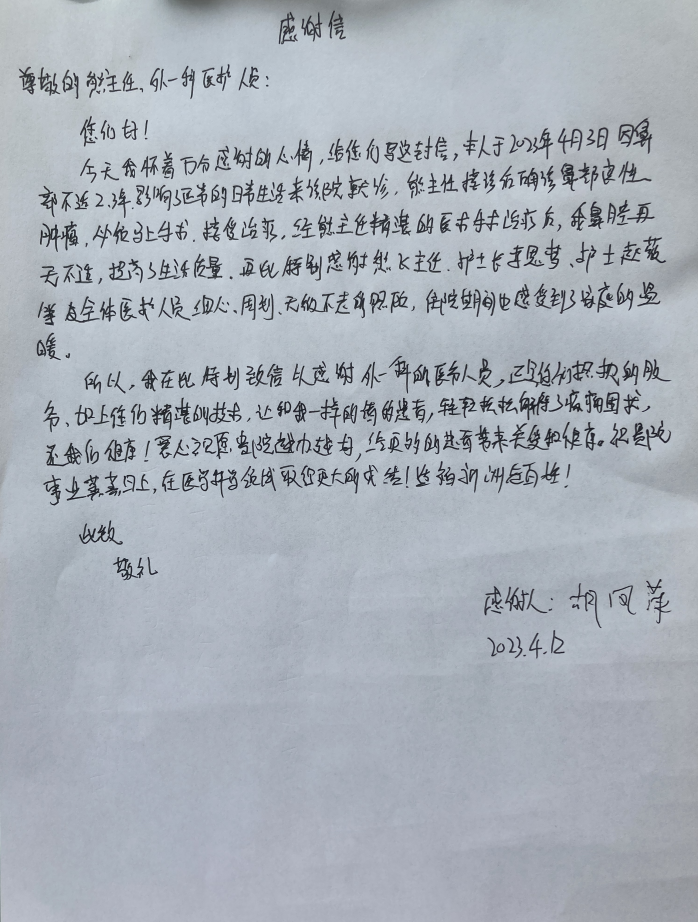 感谢信
尊敬的熊主任、外一科医护人员:
您们好!
今天我怀着万分感谢的心情,给您们写这封信,本人于2023年4月3日因鼻
部不适2.3年.影响了正常的日常生活来该院就诊,熊主任接诊后确诊鼻部良性
肿瘤,必须马上手术.接受治疗,经熊主任精湛的医术手术治疗后,我鼻腔再
无不适,提高了生活质量.再此特别感谢熊飞主任.护士长李思梦、护士赵薇
等及全体医护人员细心、周到、无微不至的照顾,住院期间也感受到了家庭的温
暖。
所以,我在此特别致信以感谢外一科的医务人员,还是您们热的服
务、加上您们精湛的技术,让和我一样的病的患者,轻轻松松解除了疾病困扰,
还我们健康!衷心祝愿贵院越办越好,给更多的患者带来关爱和健康。祝贵院
事业蒸蒸日上,在医学科学领域取得更大的成绩!造福株洲百姓!
此致
敬礼
感谢人:胡凤萍
2023.4.12